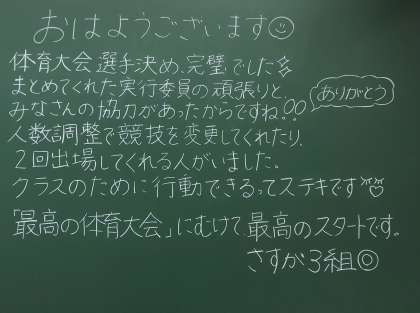 おはようございます☺
体育大会選手決め、完璧でした
まとめてくれた実行委員の頑張りと、
みなさんの協力があったからですね!!
ありがとう
人数調整で競技を変更してくれたり、
2回出場してくれる人がいました。
クラスのために行動できるってステキです
「最高の体育大会」にむけて、最高のスタートです。
さすが3組◎